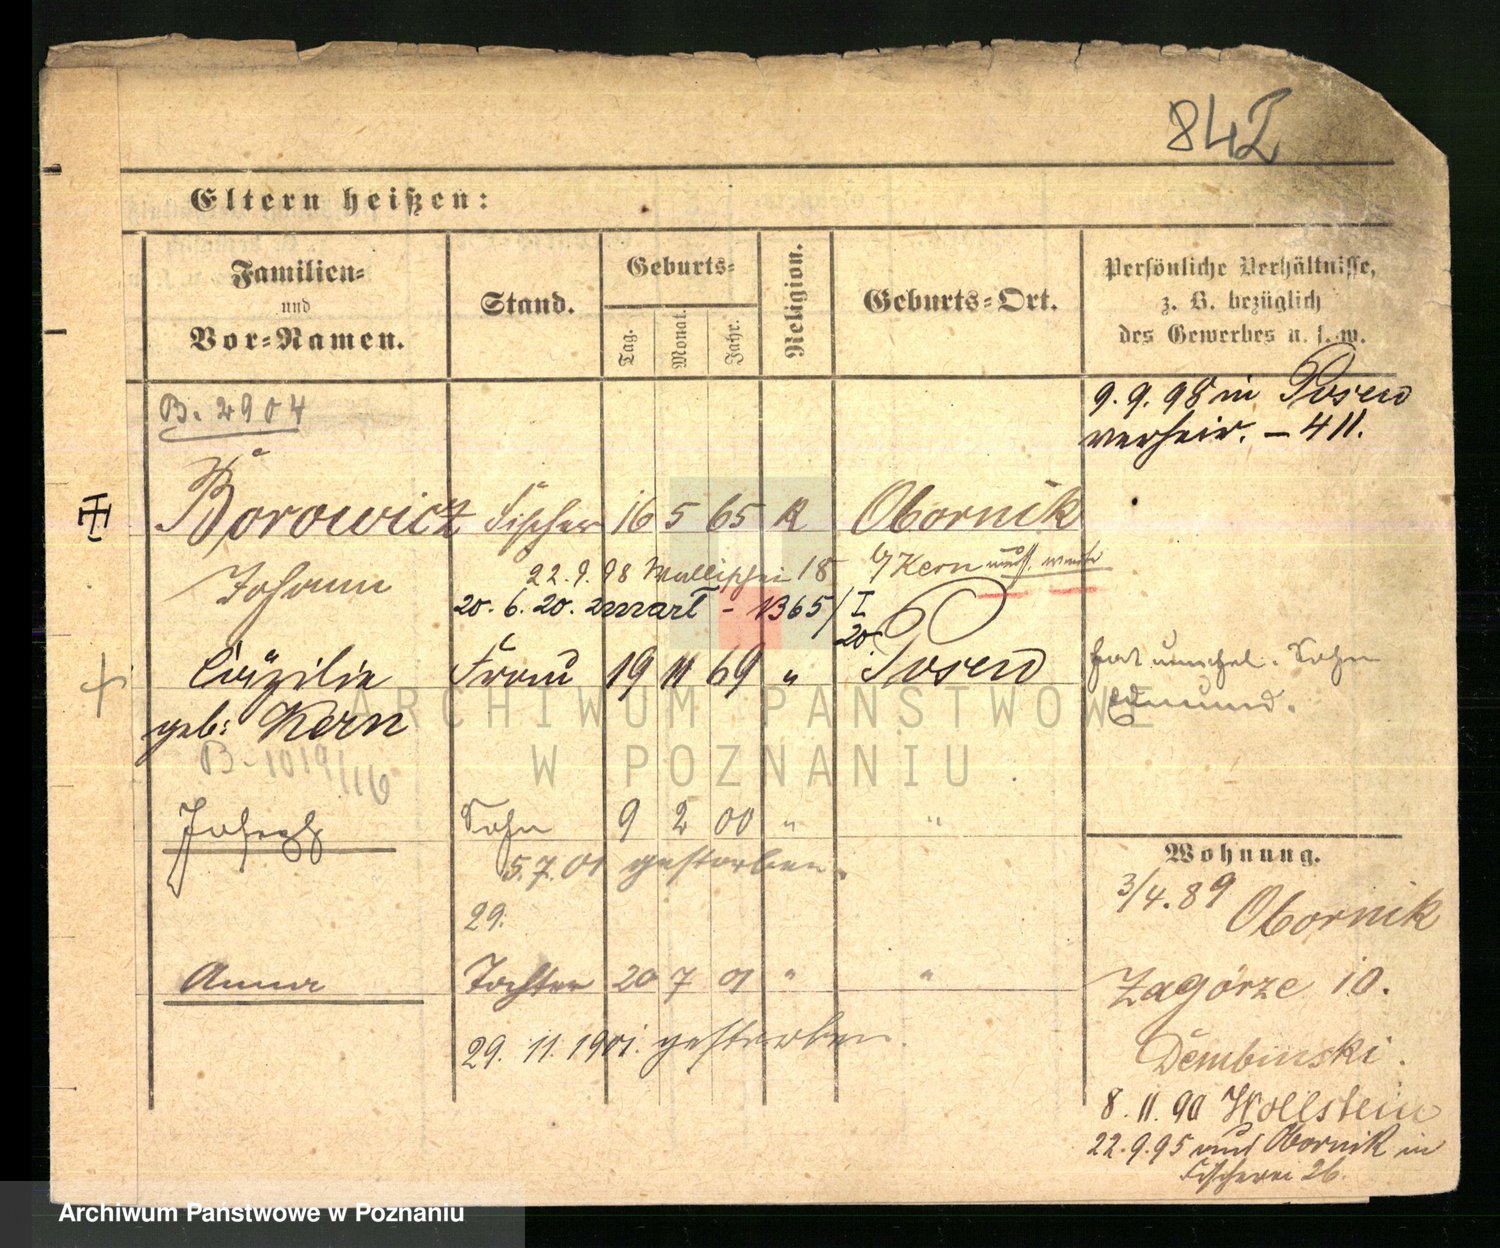 84I
Eltern heißen:
Familien-
und
Vor-Namen.
Stand.
Geburts-
Tag.
Monat.
Jahr.
Religion.
Geburts-Ort.
Persönliche Verhältnisse,
z. B. bezüglich
des Gewerbes u. s. w.
9. 9. 98 in Posen
verheir. – 411.
B. 2904
Borowicz Fischer 16 5 65 K Obornik
Johann
22. 9. 98 Wallischei 18 b/ Kern
20. 6. 20. - 1365/I
20.
Cäzilie Frau 19 11 69 " Posen
geb: Kern
hat unehel. Sohn
Edmund.
B-1019/16
Joseph Sohn 9 2 00 " "
5. 7. 01 gestorben.
29.
Anna Tochter 20 7 01 " "
29. 11. 1901. gestorben.
Wohnung.
3/4. 89 Obornik
Zagórze 10.
Dembinski.
8. 11. 90 Wollstein
22. 9. 95 aus Obornik in
Fischerei 26.
ARCHIWUM PAŃSTWOWE
W POZNANIU
Archiwum Państwowe w Poznaniu